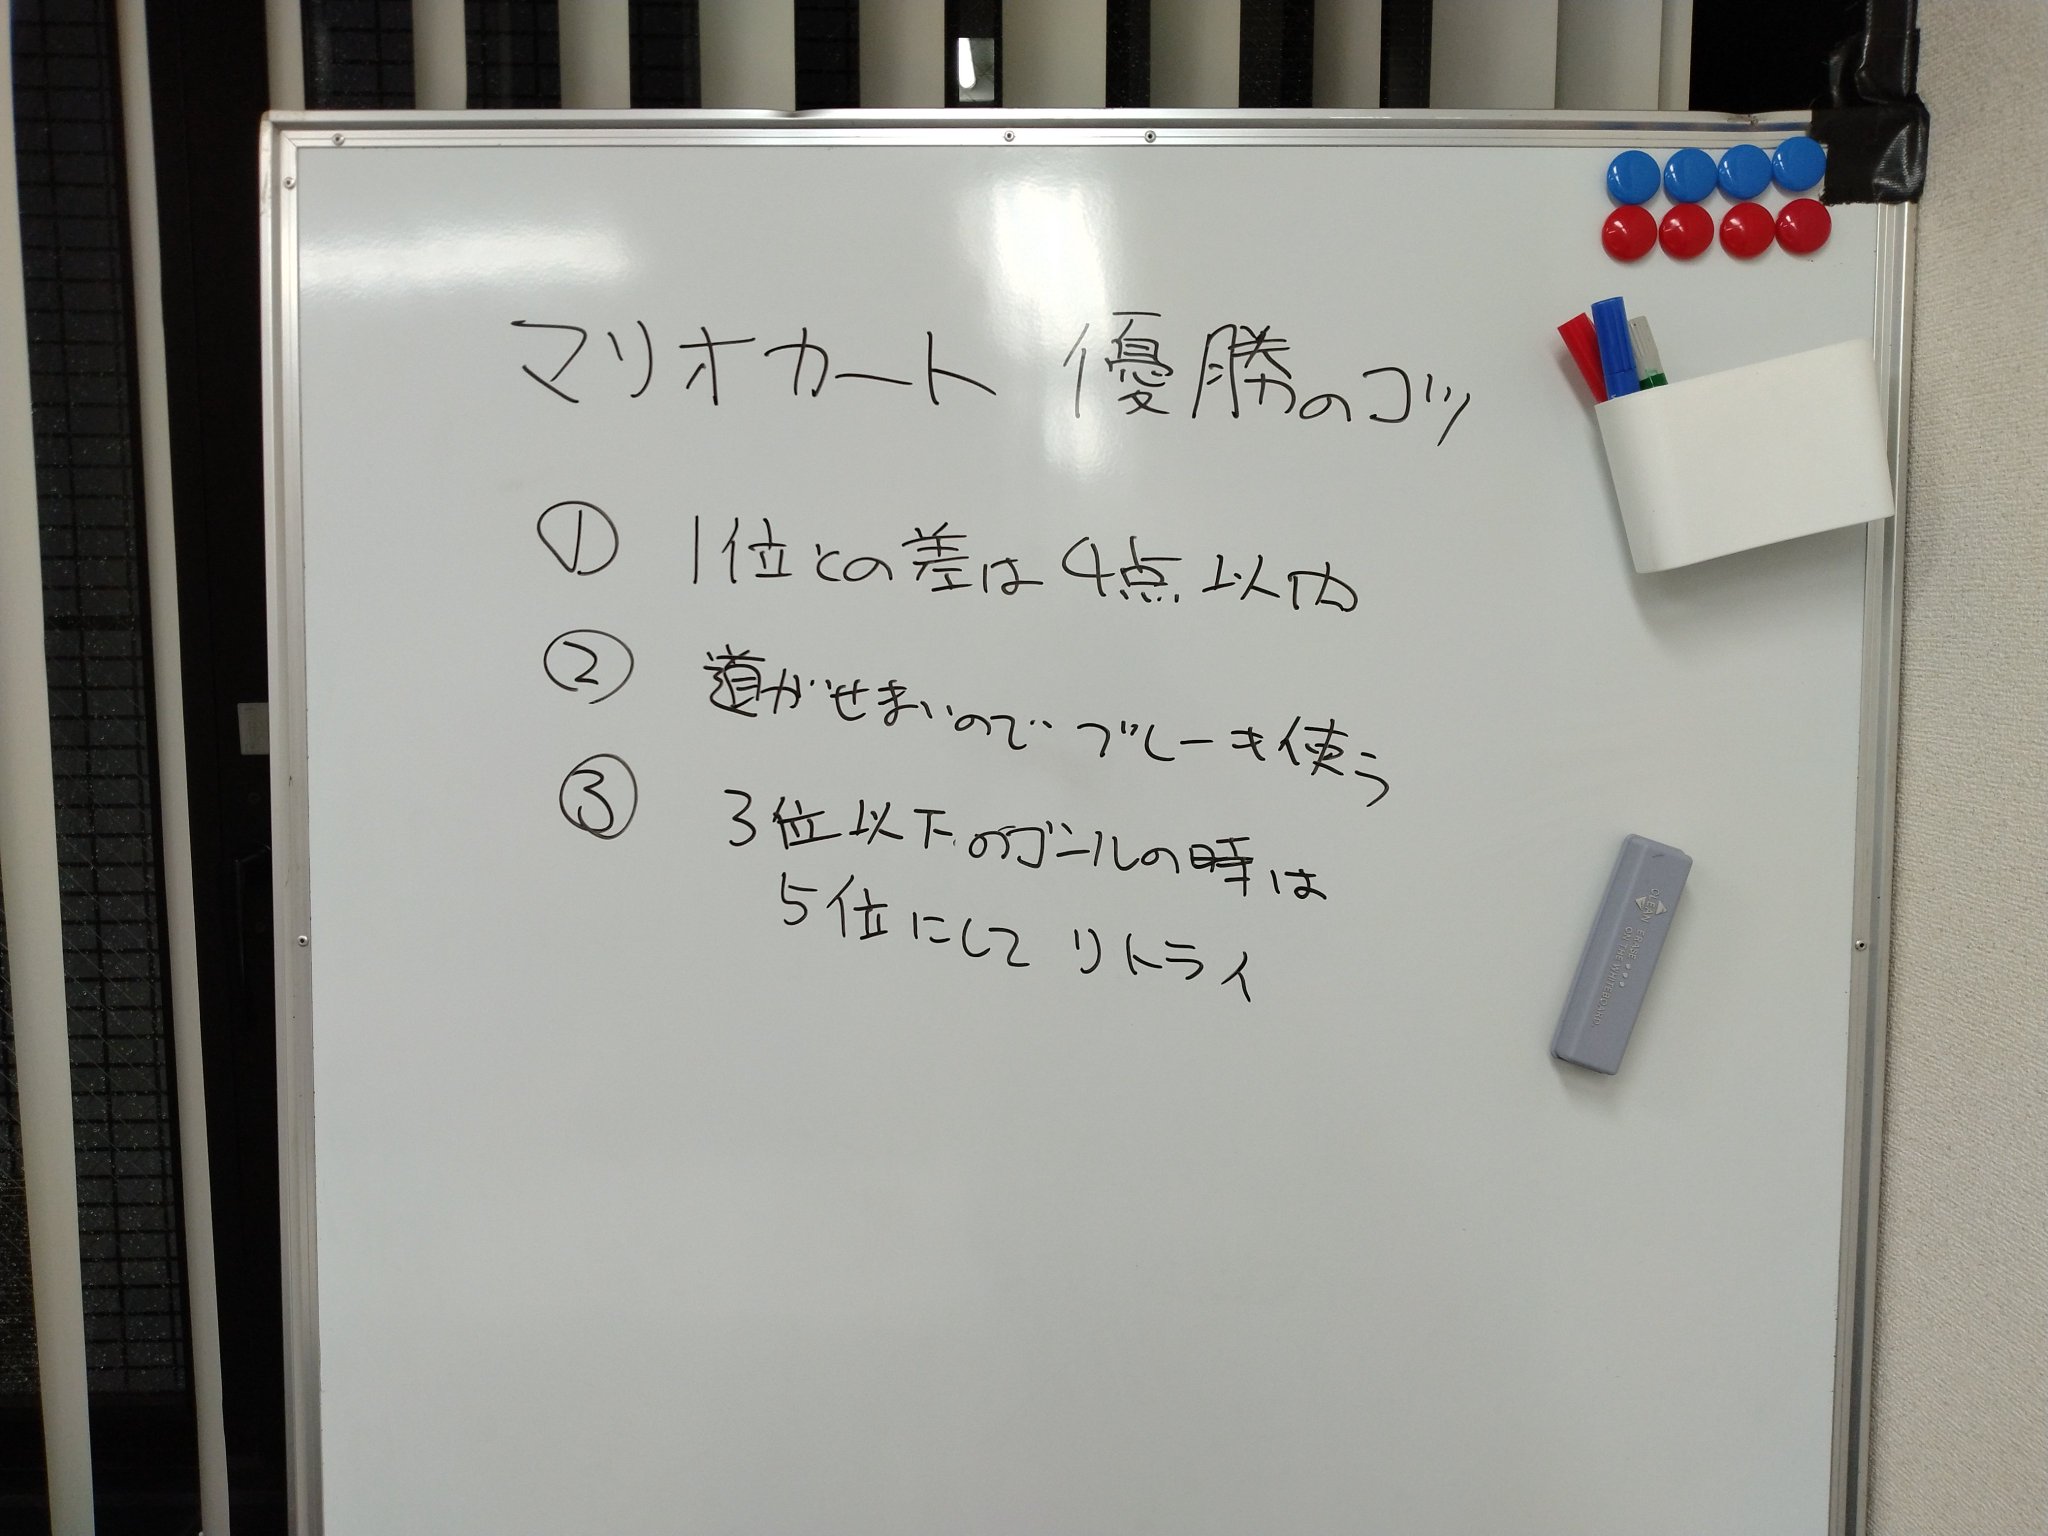 マリオカート 優勝のコツ
① 1位との差は4点以内
② 道がせまいので ブレーキ使う
③ 3位以下のゴールの時は
5位にして リトライ
CLEAN
ERASE
ON THE WHITEBOARD.